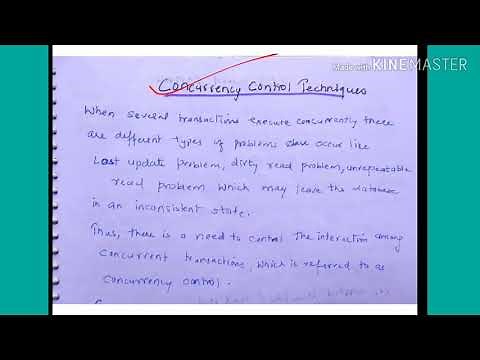 Made with KINEMASTER
Concurrency Control Techniques
When several transactions execute concurrently there
are different types of problems occur like
Lost update problem, dirty read problem, unrepeatable
read problem which may leave the database
in an inconsistent state.
Thus, there is a need to control the interaction among
concurrent transactions, which is referred to as
concurrency control.